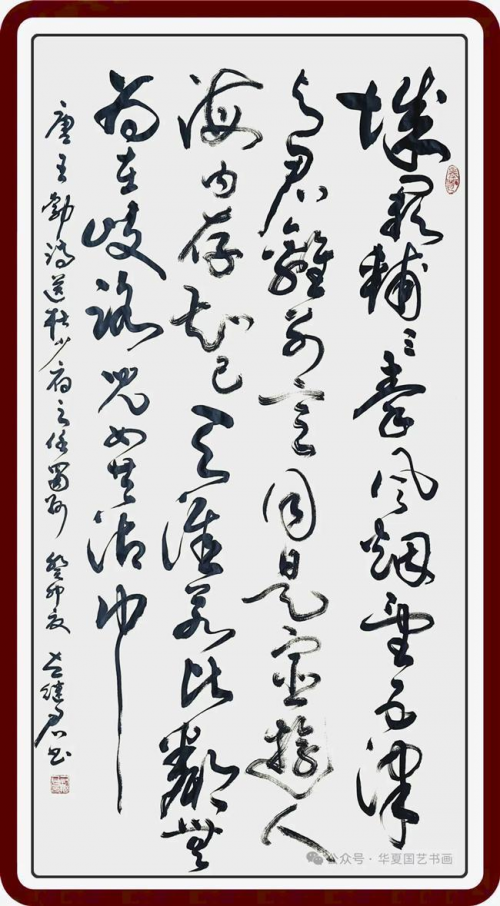 城闕輔三秦风烟望五津
与君離别意同是宦遊人
海内存知己天涯若比鄰無
为在歧路児女共沾巾
唐王勃诗送杜少府之任蜀州 癸卯夏 继君书
公众号・华夏国艺书画